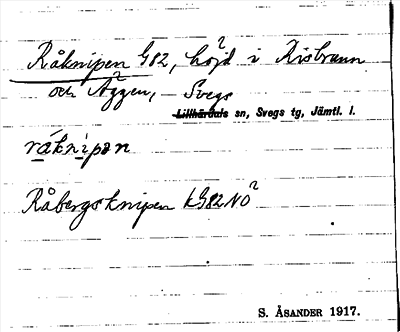 Råknipen G82, höjd i Risbrunn
och Äggen, Svegs
Lillhärdals sn, Svegs tg, Jämtl. l.
råknipən
Råbergsknipen k G82 NO?
S. ÅSANDER 1917.